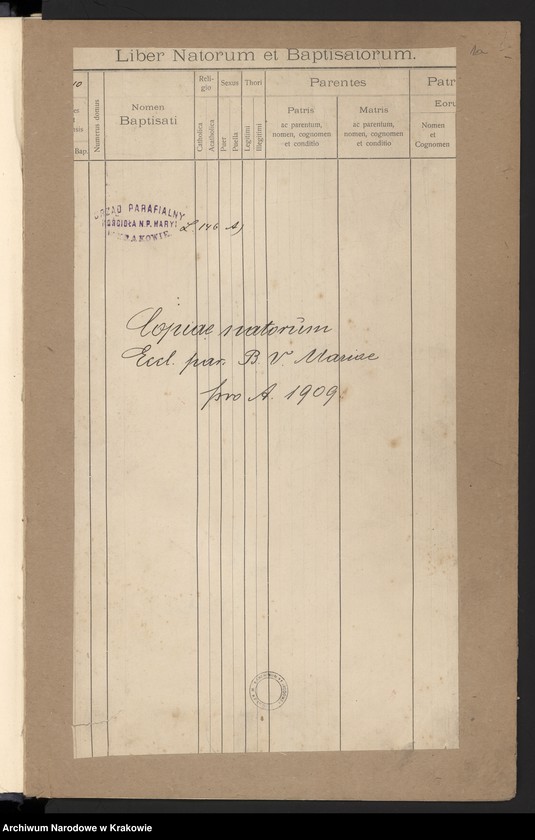 Liber Natorum et Baptisatorum.
Numerus domus
Nomen
Baptisati
Reli-
gio
Catholica
Acatholica
Sexus
Puer
Puella
Thori
Legitimi
Illegitimi
Parentes
Patris
ac parentum,
nomen, cognomen
et conditio
Matris
ac parentum,
nomen, cognomen
et conditio
Patr
Eoru
Nomen
et
Cognomen
Bap.
URZĄD PARAFIALNY
KOŚCIOŁA N.P. MARYI
W KRAKOWIE
L. 146 A)
Copiae natorum
Eccl. par. B. V. Mariae
pro A. 1909
Archiwum Narodowe w Krakowie